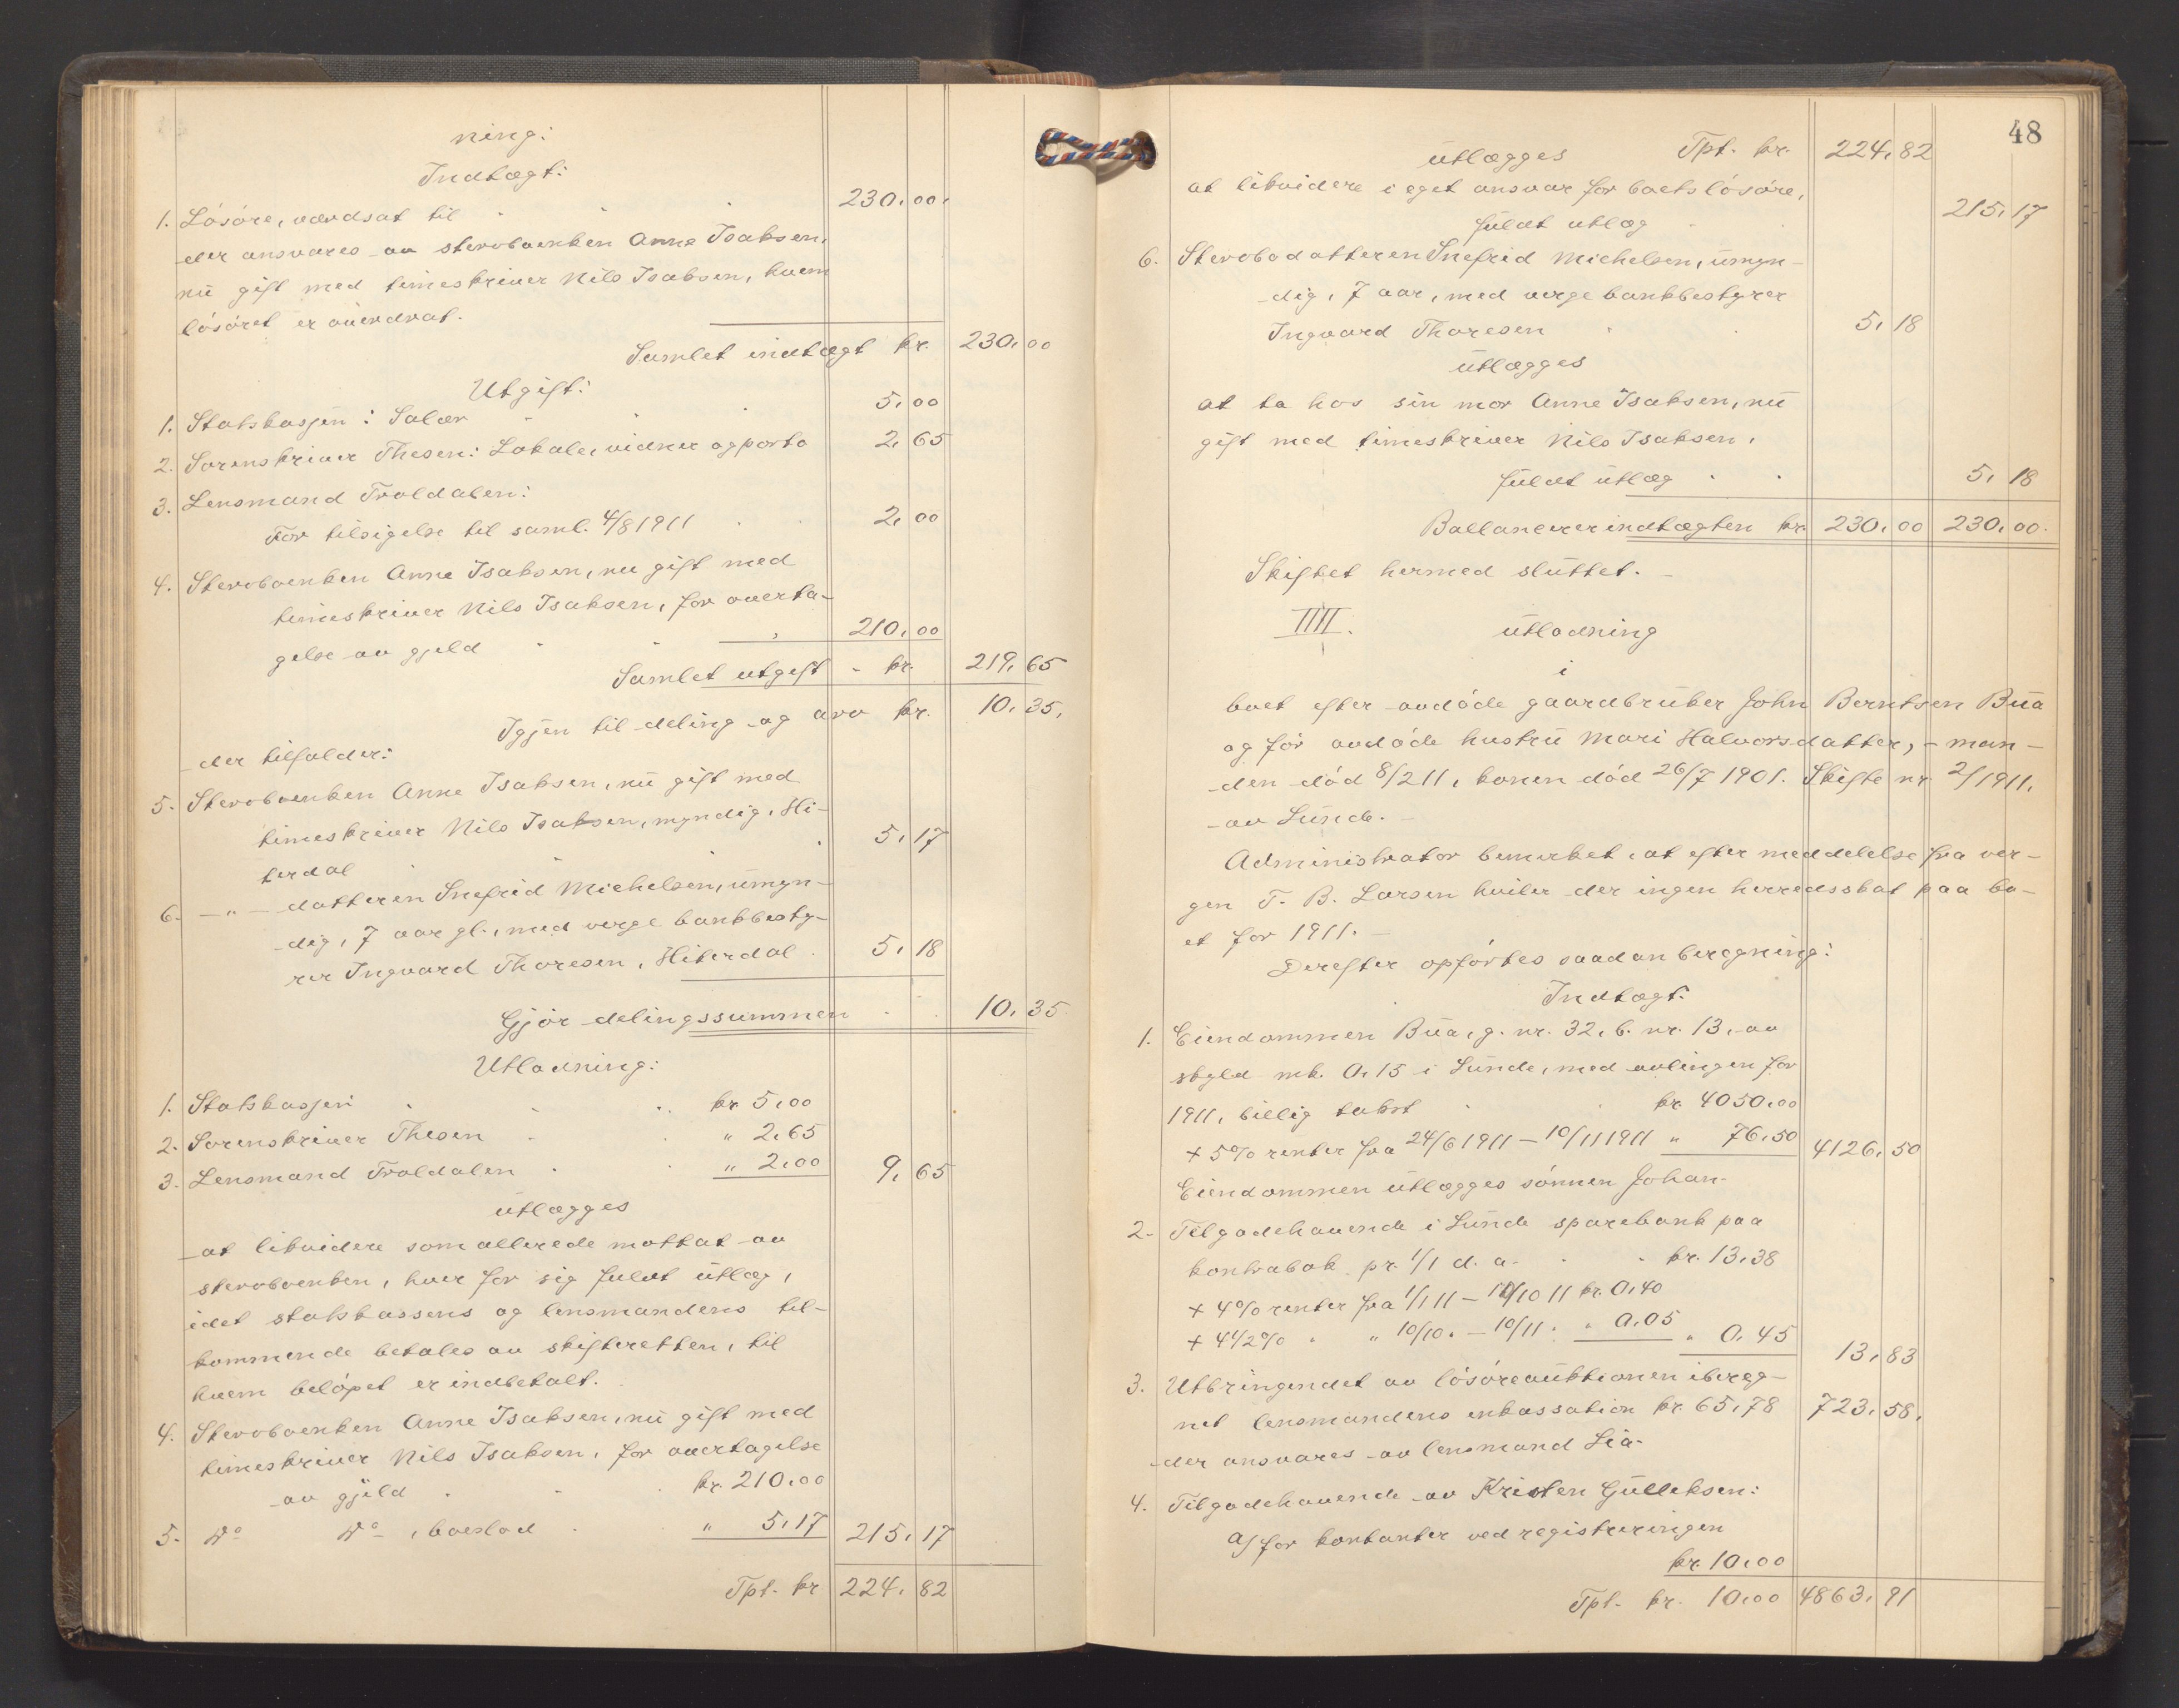 ning:
Indtægt:
1. Løsøre, værdsat til 230,00.
der ansvares av stervboenken Anne Isaksen,
nu gift med timeskriver Nils Isaksen, hvem
løsøret er overdrat.
Samlet indtægt kr. 230,00
Utgift:
1. Statskassen: Salær 5,00
2. Sorenskriver Thesen: Lokale, vidner og porto 2,65
3. Lensmand Troldalen:
For tilsigelse til saml. 4/8 1911 2,00
4. Stervboenken Anne Isaksen, nu gift med
timeskriver Nils Isaksen, for overta-
gelse av gjeld 210,00
Samlet utgift - kr. 219,65
Igjen til deling og arv kr. 10,35,
der tilfalder:
5. Stervboenken Anne Isaksen, nu gift med
timeskriver Nils Isaksen, myndig, Hi-
terdal 5,17
6. — " — datteren Snefrid Michelsen, umyn-
dig, 7 aar gl., med verge bankbesty-
rer Ingvard Thoresen, Hiterdal 5,18
Gjør delingssummen 10,35.
Utlodning:
1. Statskassen kr 5,00
2. Sorenskriver Thesen " 2,65
3. Lensmand Troldalen " 2,00 9,65
utlægges
at likvidere som allerede mottat av
stervboenken, hver for sig fuldt utlæg,
idet statskassens og lensmandens til-
kommende betales av skifteretten, til
hvem beløpet er indbetalt.
4. Stervboenken Anne Isaksen, nu gift med
timeskriver Nils Isaksen, for overtagelse
av gjeld kr. 210,00
5. Do Do, boeslod " 5,17 215,17
Tpt. kr 224,82
48
utlægges Tpt. kr. 224,82
at likvidere i eget ansvar for boets løsøre,
fuldt utlæg 215,17
6. Stervbodatteren Snefrid Michelsen, umyn-
dig, 7 aar, med verge bankbestyrer
Ingvard Thoresen 5,18
utlægges
at ta hos sin mor Anne Isaksen, nu
gift med timeskriver Nils Isaksen,
fuldt utlæg 5,18
Ballancerer indtægten kr. 230,00 230,00.
Skiftet hermed sluttet. —
IIII. utlodning
i
boet efter avdøde gaardbruker John Berntsen Bua
og før avdøde hustru Mari Halvorsdatter, - man-
den død 8/2 11, konen død 26/7 1901. Skifte nr 2/1911,
av Lunde. —
Administrator bemerket, at efter meddelelse fra ver-
gen T. B. Larsen hviler der ingen herredsskat paa bo-
et for 1911. —
Derefter opførtes saadan beregning:
Indtægt:
1. Eiendommen Bua, g. nr. 32, b. nr. 13, av
skyld mk. 0,15 i Lunde, med avlingen for
1911, billig takst kr. 4050,00
+ 5% renter fra 24/6 1911 — 10/11 1911 " 76,50 4126,50
Eiendommen utlægges sønnen Johan.
2. Tilgodehavende i Lunde sparebank paa
kontrabok pr. 1/1 d. a. kr. 13,38
+ 4% renter fra 1/1 11 — 10/10 11 kr. 0,40
+ 4 1/2% " " 10/10. — 10/11. " 0.05 " 0,45 13,83
3. Utbringendet av løsøreauktionen ibereg-
net lensmandens inkassation kr. 65,78 723,58,
der ansvares av lensmand Lia.
4. Tilgodehavende av Kristen Gulleksen:
a/ for kontanter ved registreringen
kr. 10,00
Tpt. kr. 10,00 4863,91